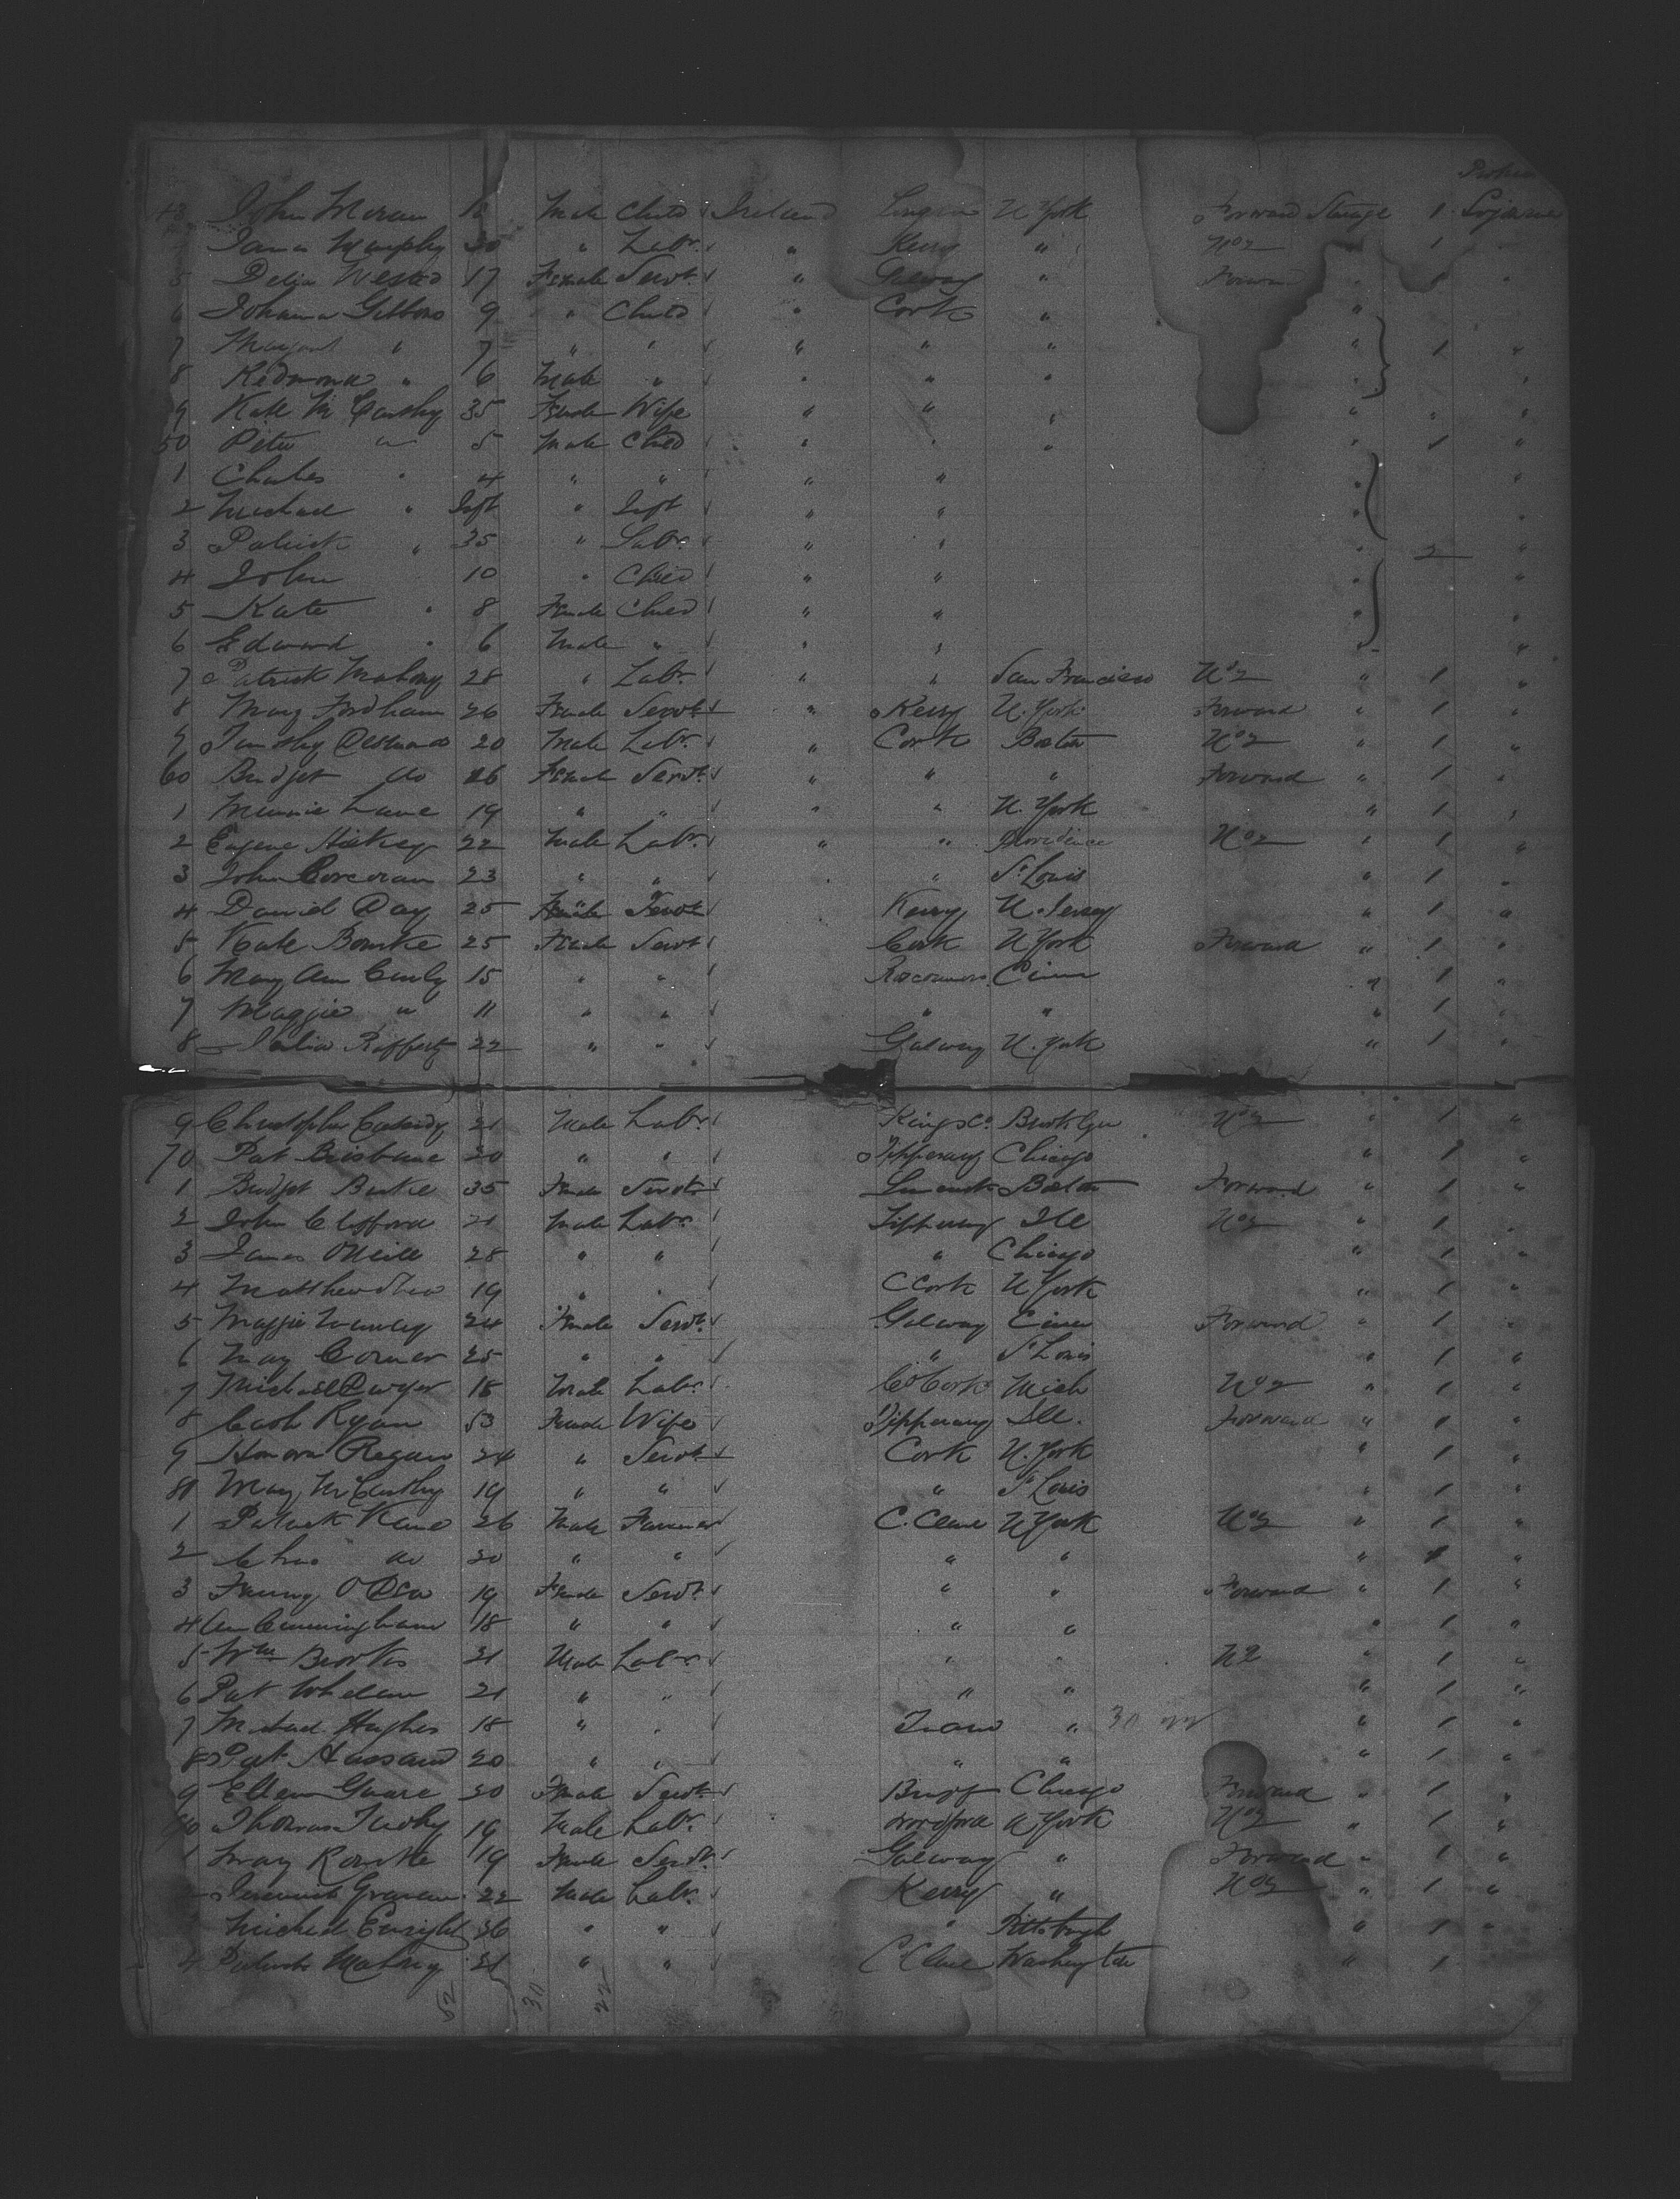 Protra
43 John Moran Male Child Ireland N York Forward Steerage 1 Sojourn
Murphy 30 " Labr " Kerry " No 2 " 1 "
5 Delia 17 Female Servt " Galway " Forward " 1 "
6 Johanna Gibbons 9 " Child " Cork " "
7 Margaret " 7 " " " " " " 1 "
8 Redmond " 6 Male " " " " " "
9 Kate McCarthy 35 Female Wife " " " " " "
50 Peter " 5 Male Child " " " " 1 "
1 Charles " 4 " " " " " "
2 Michael " Inft " Inft " " " "
3 Patrick " 35 " Labr " " " 2 "
4 John 10 " Child " " " "
5 Kate " 8 Female Child " " " "
6 Edward " 6 Male " " " " "
7 Patrick Mahony 28 " Labr " " San Francisco No 2 " 1 "
8 Mary Fordham 26 Female Servt " Kerry N. York Forward " 1 "
9 Timothy Desmond 20 Male Labr " Cork Boston No 2 " 1 "
60 Bridget do 26 Female Servt " " " Forward " 1 "
1 Minnie Lane 19 " " " " N. York " 1 "
2 Eugene Hickey 22 Male Labr " " Providence No 2 " 1 "
3 John Corcoran 23 " " " " St Louis " 1 "
4 Daniel Day 25 Kerry N. Jersey " 1 "
5 Kate Bourke 25 Female Servt Cork N York Forward " 1 "
6 Mary Ann Curly 15 " " Roscommon Cinn " 1 "
7 Maggie " 11 " " " " " 1 "
8 Julia Rafferty 22 " " Galway N. York " 1 "
9 Christopher Cassidy 21 Male Labr Kings Co Brooklyn No 2 " 1 "
70 Pat Brisbane 20 " " Tipperary Chicago " 1 "
1 Bridget Burke 35 Female Servt Limerick Boston Forward " 1 "
2 John Clifford 21 Male Labr Tipperary Ill No 2 " 1 "
3 James O'Neill 28 " " " Chicago " 1 "
4 Matthew 19 " " C Cork N York " 1 "
5 Maggie 24 Female Servt Galway Cinn Forward " 1 "
6 May 25 " " " St Louis " 1 "
7 Michael Dwyer 18 Male Labr Co Cork Mich No 2 " 1 "
8 Cath Ryan 53 Female Wife Tipperary Ill. Forward " 1 "
9 Honora Regan 24 " Servt Cork N. York " 1 "
80 Mary McCarthy 19 " " " St Louis " 1 "
1 Patrick Kane 26 Male Farmer C. Clare N York No 2 " 1 "
2 Chas do 20 " " " " " 1 "
3 Fanny O'Dea 19 Female Servt " " Forward " 1 "
4 Ann Cunningham 18 " " " " " 1 "
5 Wm 21 Male Labr " " N 2 " 1 "
6 Pat Whelan 21 " " " " " 1 "
7 Michael Hughes 18 " " " 30 22 " 1 "
8 Pat 20 " " " " " 1 "
9 Ellen 20 Female Servt Bruff Chicago Forward " 1 "
90 Thomas Tuohy 19 Male Labr Woodford N York No 2 " 1 "
1 May Rourke 19 Female Servt Galway " Forward " 1 "
2 22 Male Labr Kerry " No 2 " 1 "
Michael Enright 26 " " " Pittsburgh " 1 "
4 Patrick Mahony 21 " " C Clare Washington " 1
52 30 22